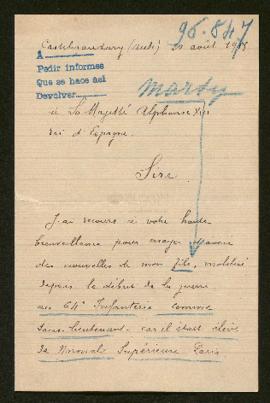 96.847
Castelnaudary (Aude) 20 août 1915
A
Pedir informes
Que se hace así
Devolver
Marty
à Sa Majesté Alphonse XIII
roi d'Espagne.
Sire
J'ai recours à votre haute
bienveillance pour essayer d'avoir
des nouvelles de mon fils, mobilisé
depuis le début de la guerre
au 64e Infanterie comme
sous-lieutenant car il était élève
de Normale Supérieure Paris